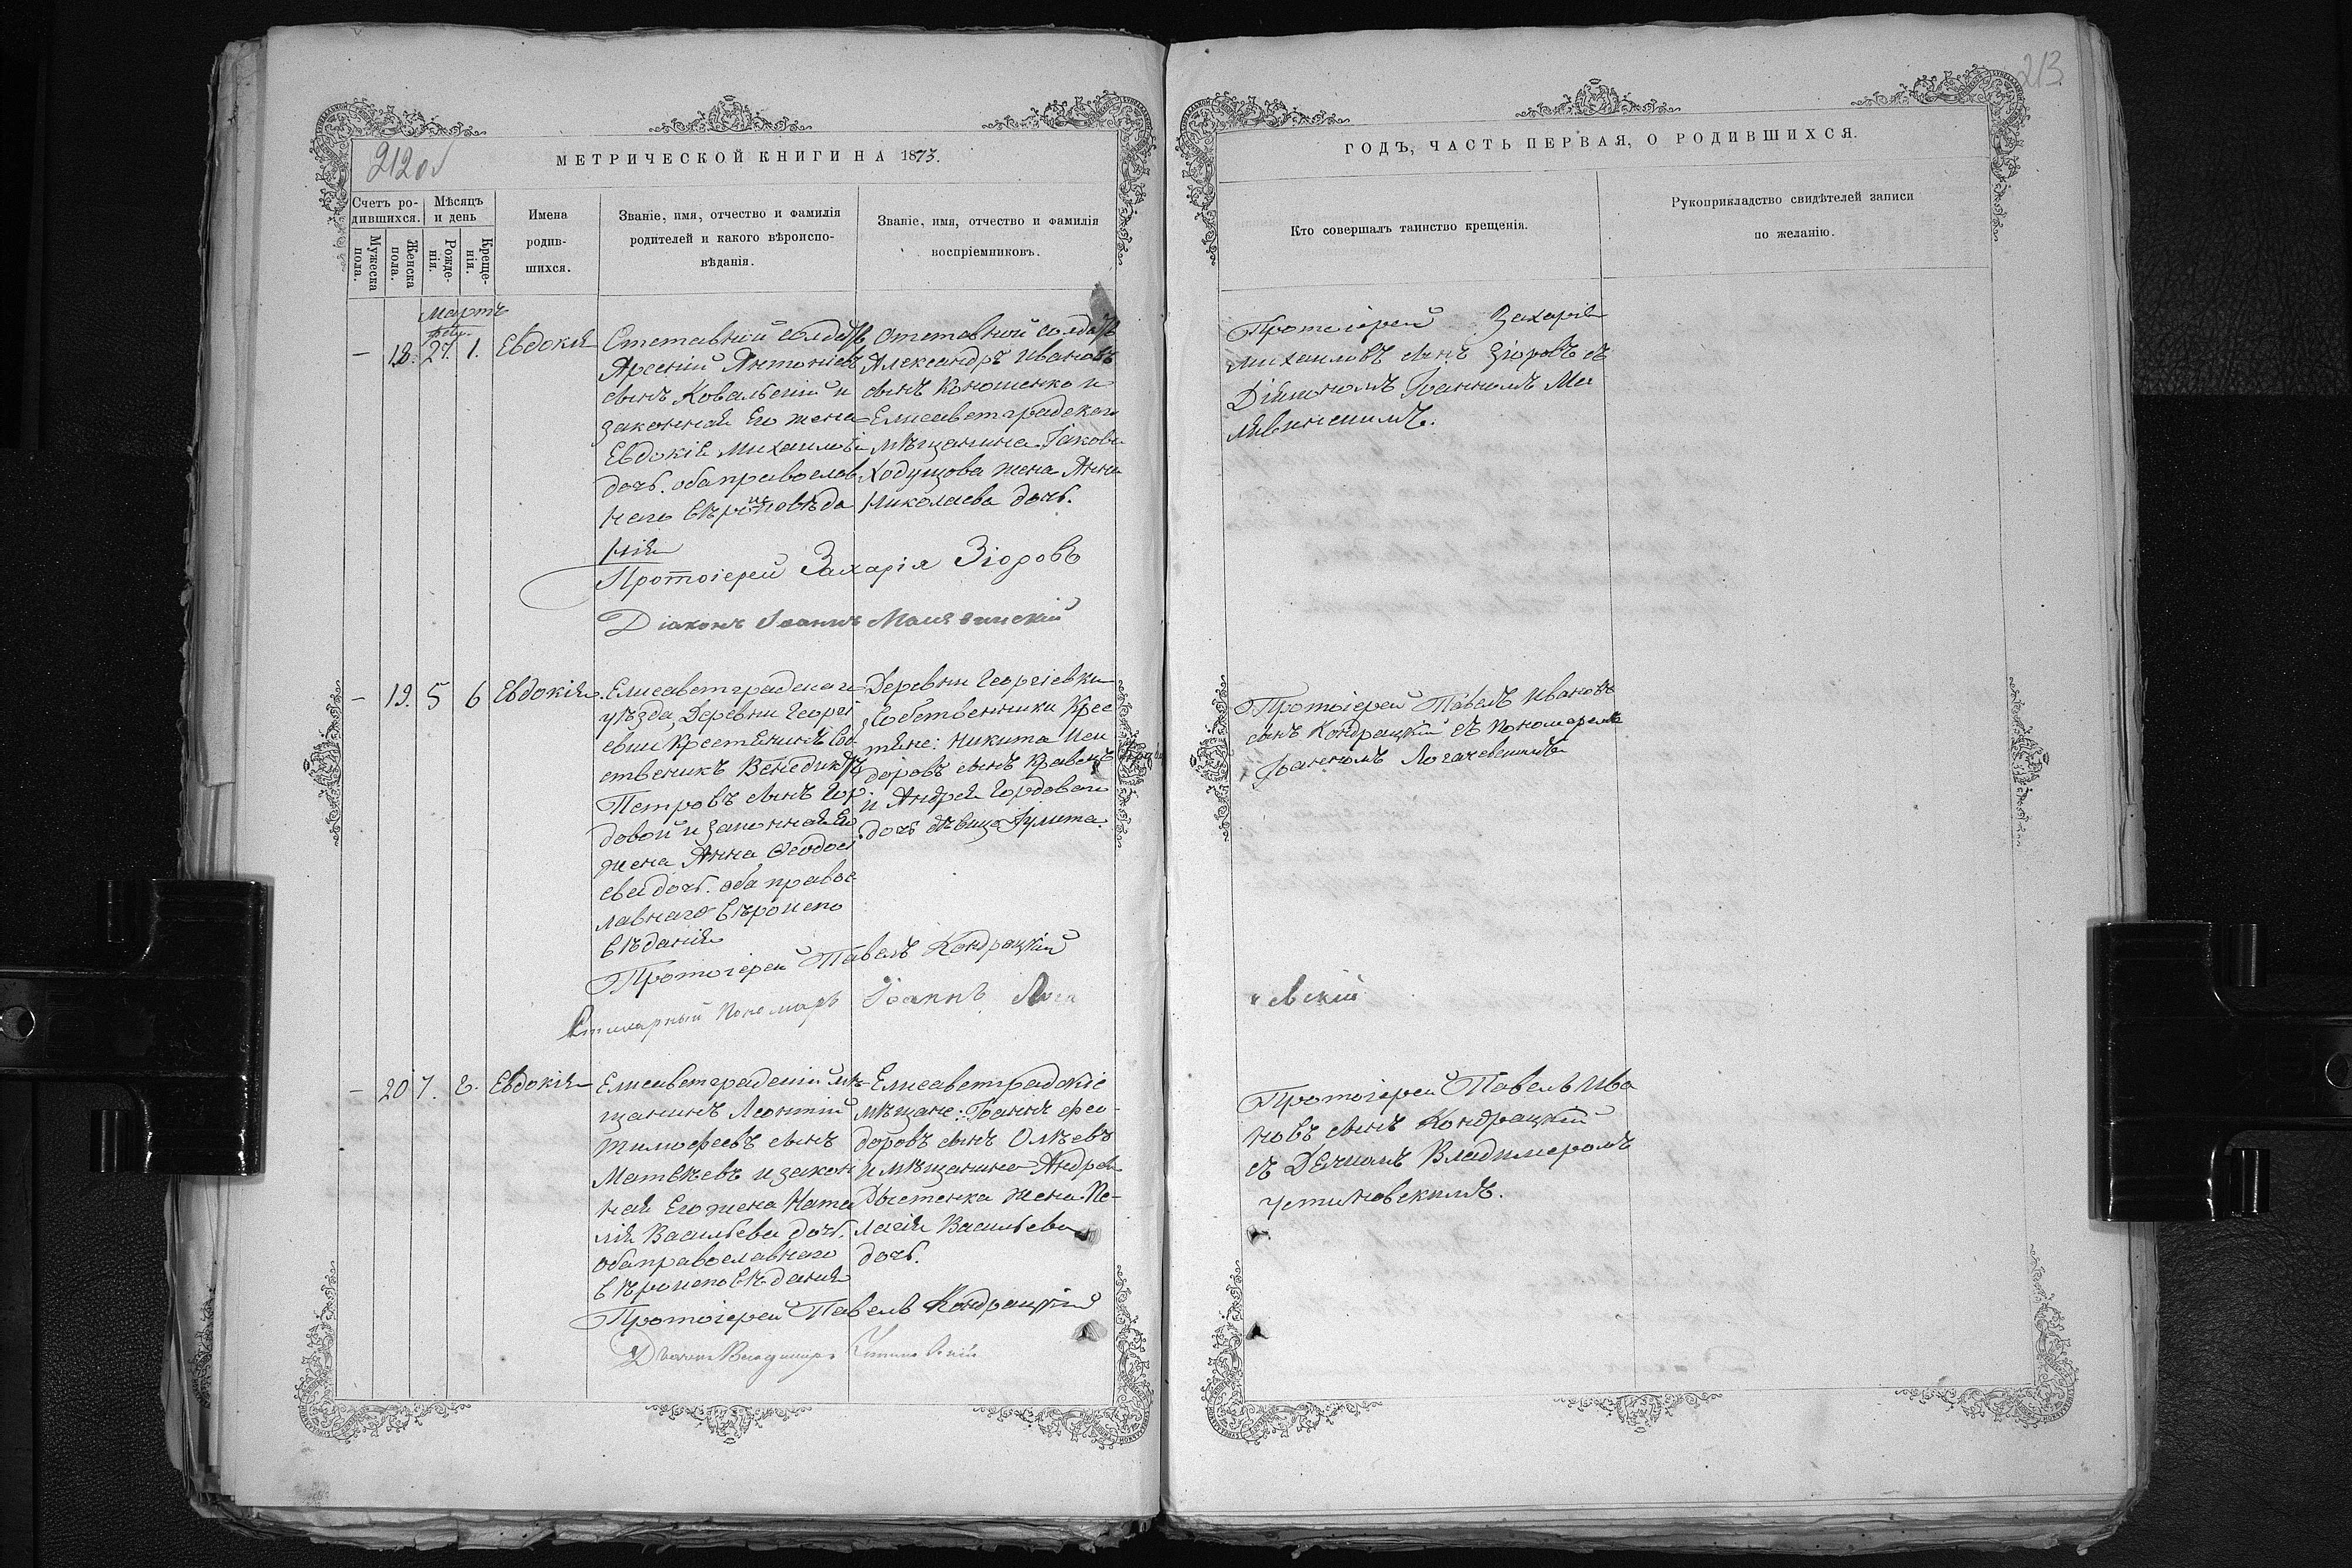 212 об
МЕТРИЧЕСКОЙ КНИГИ НА 1873.
Счетъ ро-
дившихся.
Мѣсяцъ
и день
Мужеска
пола.
Женска
пола.
Рожде-
нія.
Креще-
нія.
Имена
родив-
шихся.
Званіе, имя, отчество и фамилія
родителей и какого вѣроиспо-
вѣданія.
Званіе, имя, отчество и фамилія
воспріемниковъ.
Мартъ
— 18. 27. 1. Евдокія
Отставный солдатъ
Арсеній Антоніевъ
сынъ Ковальскій и
законная Его жена
Евдокія Михаилова
дочь. оба православ
наго вѣроисповѣда
нія
Отставной солдатъ
Александръ Ивановъ
сынъ Кношенко и
Елисаветградскаго
мѣщанина Іакова
Ходущова жена Анна
Николаева дочь.
Протоіерей Захарія Зіоровъ
Діаконъ Іоаннъ Малявинскій
— 19. 5 6 Евдокія
Елисаветградскаго
уѣзда, Деревни Георгі
евки Крестянинъ Соб
ственикъ Венедиктъ
Петровъ сынъ Гор
довой и законная Его
жена Анна Ѳеодосі
ева дочь. оба правос
лавнаго вѣроиспо
вѣданія
Деревни Георгіевки
собственники Крес
тяне: Никита Иси
доровъ сынъ Кравецъ
и Андрея Гордоваго
дочь дѣвица Іулита.
Протоіерей Павелъ Кондрацкій
Пономарь Іоаннъ Лога
— 20 7. 8. Евдокія
Елисаветградскій мѣ
щанинъ Леонтій
Тимофеевъ сынъ
Матвѣевъ и закон
ная Его жена Ната
лія Васильева дочь.
оба православнаго
вѣроисповѣданія
Елисаветградскіе
мѣщане: Іоаннъ Фео-
доровъ сынъ Олѣевъ
и мѣщанина Андрея
Дыстенка жена Пе-
лагія Васильева
дочь.
Протоіерей Павелъ Кондрацкій
Дьячокъ Владимиръ
213
ГОДЪ, ЧАСТЬ ПЕРВАЯ, О РОДИВШИХСЯ.
Кто совершалъ таинство крещенія.
Рукоприкладство свидѣтелей записи
по желанію.
Протоіерей Захарія
Михаиловъ сынъ Зіоровъ съ
Діякономъ Іоанномъ Ма
лявинскимъ.
Протоіерей Павелъ Ивановъ
сынъ Кондрацкій съ Пономаремъ
Іоанномъ Логачевскимъ
чевскій
Протоіерей Павелъ Ива
новъ сынъ Кондрацкій
съ Дячкомъ Владимеромъ
Устиновскимъ.